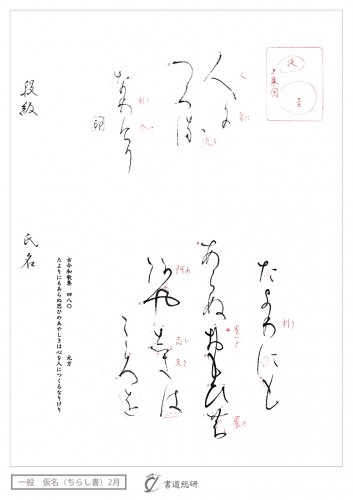 たよりにも
あらぬおもひの
あやしきは
こころを
人に
つくる
なりけり
段級
氏名
古今和歌集　四八〇　元方
たよりにもあらぬ思ひのあやしきは心を人につくるなりけり
一般　仮名（ちらし書）2月
書道総研